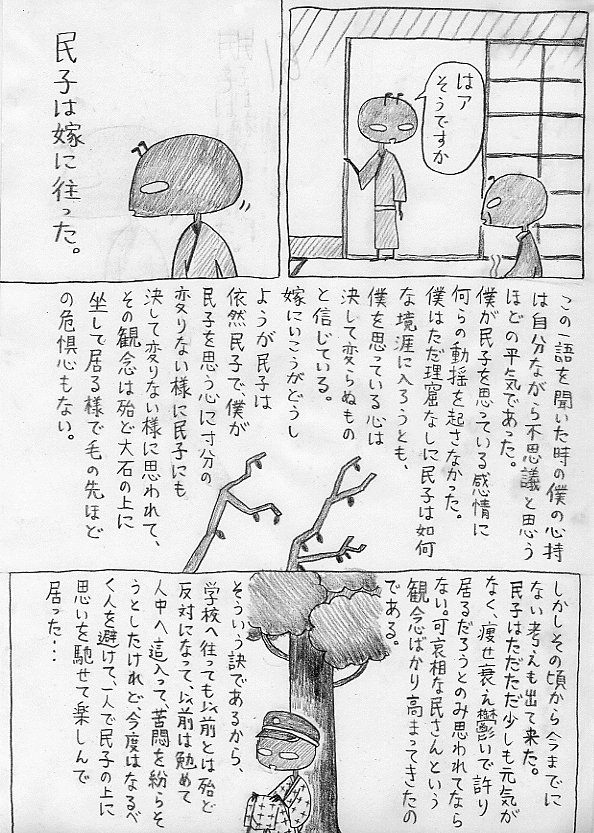 はア
そうですか
民子は嫁に往った。
この一語を聞いた時の僕の心持
は自分ながら不思議と思う
ほどの平気であった。
僕が民子を思っている感情に
何らの動揺を起さなかった。
僕はただ理窟なしに民子は如何
な境涯に入ろうとも、
僕を思っている心は
決して変らぬもの
と信じている。
嫁にいこうがどうし
ようが民子は
依然民子で、僕が
民子を思う心に寸分の
変りない様に民子にも
決して変りない様に思われて、
その観念は殆ど大石の上に
坐して居る様で毛の先ほど
の危惧心もない。
しかしその頃から今までに
ない考えも出て来た。
民子はただただ少しも元気が
なく、痩せ衰え鬱いで許り
居るだろうとのみ思われてなら
ない。可哀相な民さんという
観念ばかり高まってきたの
である。
そういう訣であるから、
学校へ往っても以前とは殆ど
反対になって、以前は勉めて
人中へ這入って、苦悶を紛らそ
うとしたけれど、今度はなるべ
く人を避けて、一人で民子の上に
思いを馳せて楽しんで
居った…